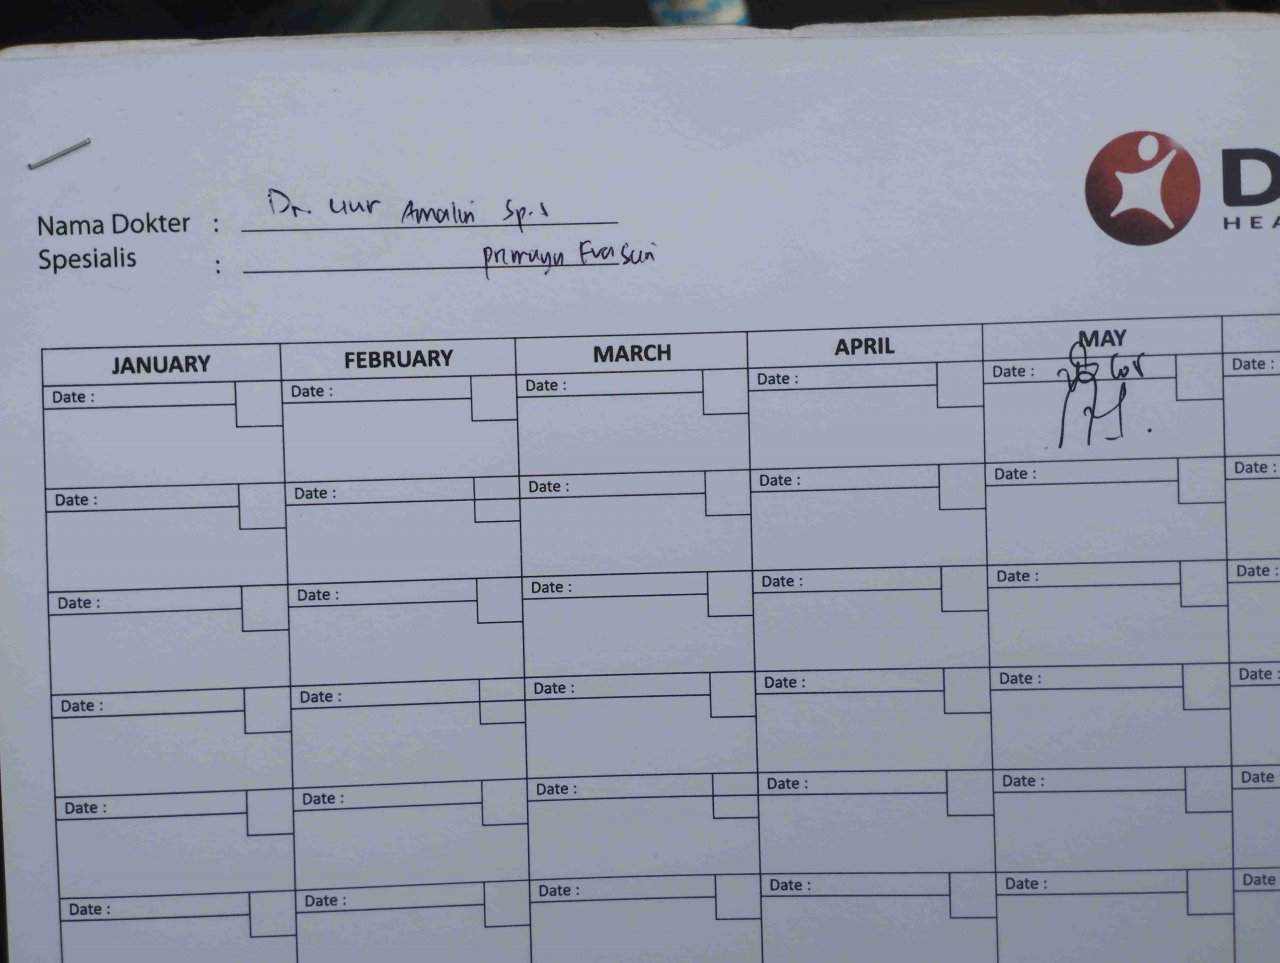 D
HEA
Nama Dokter : Dr. Amalin Sp.s
Spesialis : Primaya Evasari
JANUARY FEBRUARY MARCH APRIL MAY
Date : Date : Date : Date : Date : Date :
Date : Date : Date : Date : Date : Date :
Date : Date : Date : Date : Date : Date :
Date : Date : Date : Date : Date : Date :
Date : Date : Date : Date : Date : Date
Date : Date : Date : Date : Date : Date